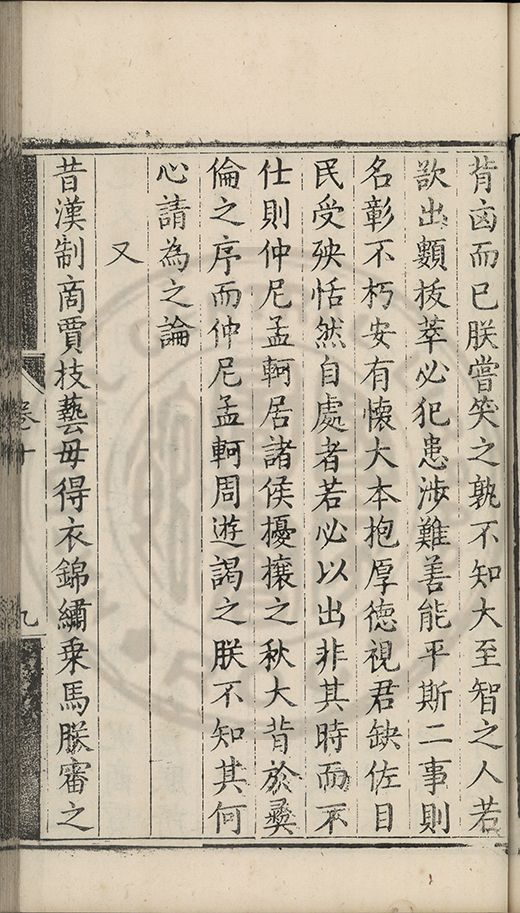 背卤而已朕嘗笑之孰不知大至智之人若
欲出類拔萃必犯患涉難善能平斯二事則
名彰不朽安有懷大本抱厚德視君缺佐目
民受殃恬然自處者若必以出非其時而不
仕則仲尼孟軻居諸侯擾攘之秋大背於彝
倫之序而仲尼孟軻周遊謁之朕不知其何
心請為之論
又
昔漢制商賈技藝毋得衣錦繡乗馬朕審之
卷十
九